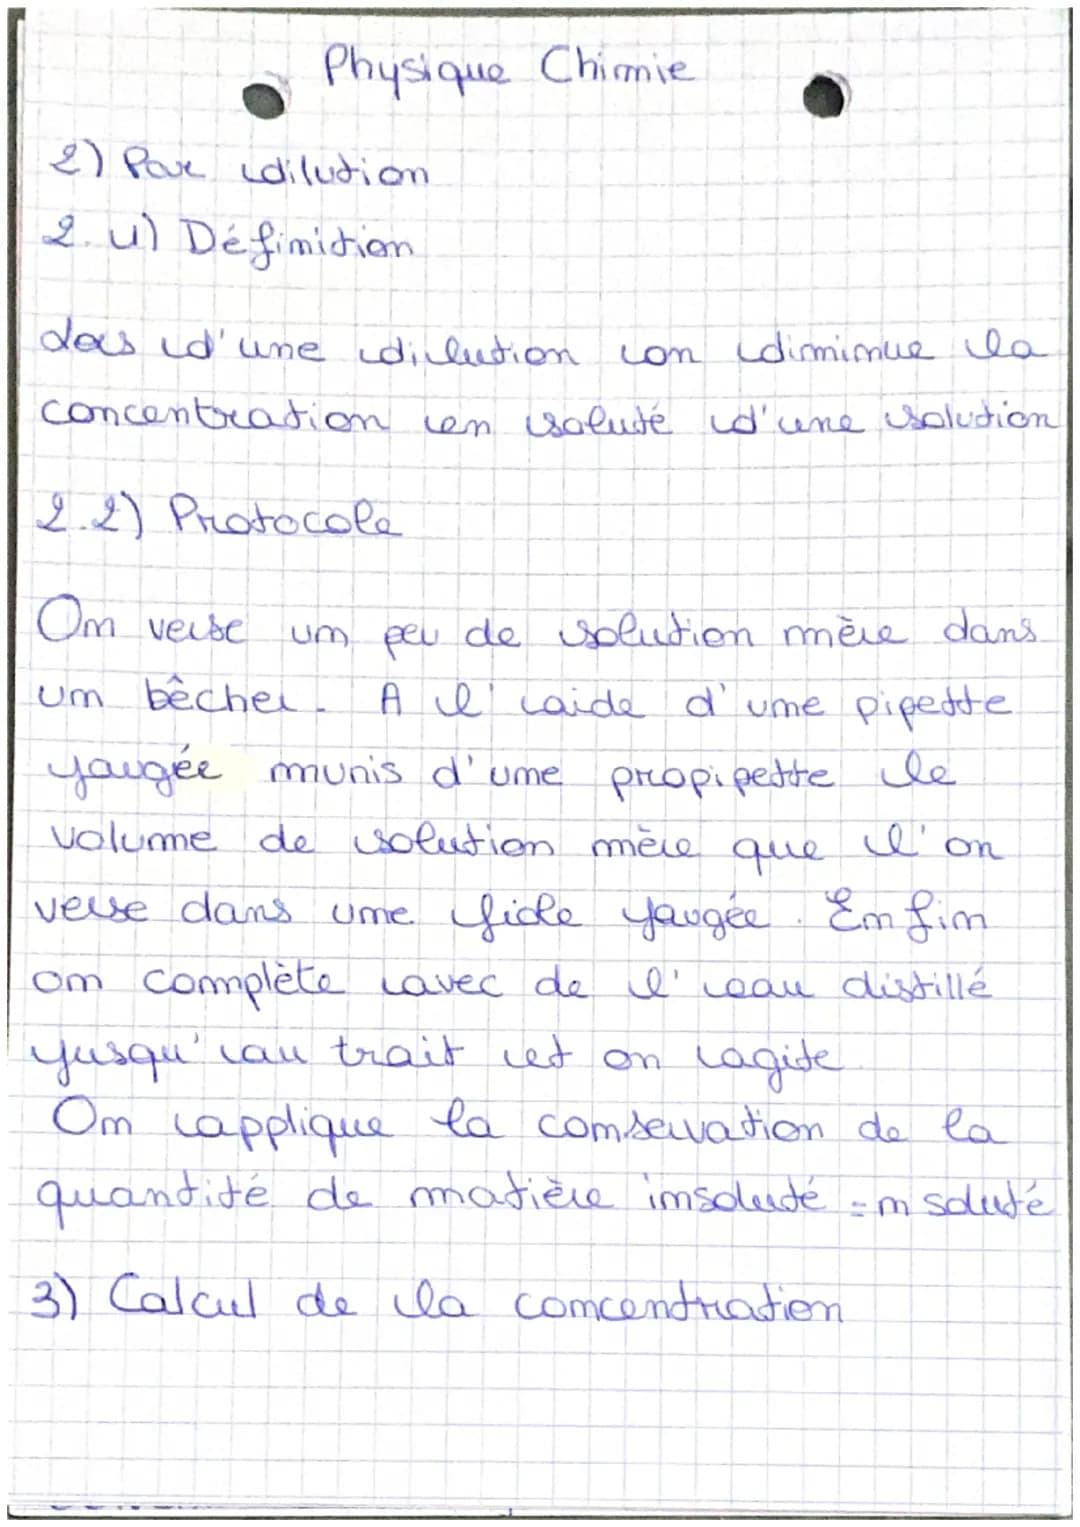 Physique Chimie
2) Par dilution
2.1) Définition
Lors d'une dilution on diminue la
concentration en soluté d'une solution
2.2) Protocole
On verse un peu de solution mère dans
un bêcher. A l'aide d'une pipette
jaugée munis d'une propipette le
volume de solution mère que l'on
verse dans une fiole jaugée. Enfin
on complète avec de l'eau distillé
jusqu'au trait et on agite
On applique la conservation de la
quantité de matière insoluté = m soluté
3) Calcul de la concentration